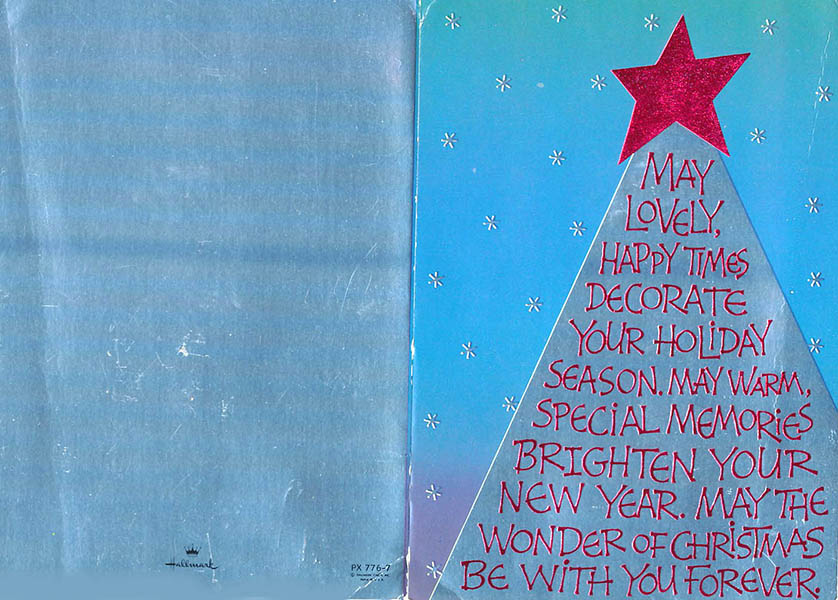 Hallmark
PX 776-7
MAY
LOVELY,
HAPPY TIMES
DECORATE
YOUR HOLIDAY
SEASON. MAY WARM,
SPECIAL MEMORIES
BRIGHTEN YOUR
NEW YEAR. MAY THE
WONDER OF CHRISTMAS
BE WITH YOU FOREVER.